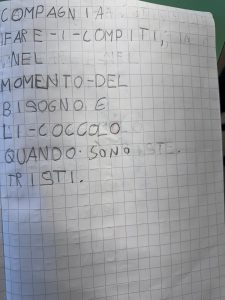 COMPAGNIA
FARE-I-COMPITI,
NEL
MOMENTO-DEL
BISOGNO E
LI-COCCOLO
QUANDO. SONO
TRISTI.